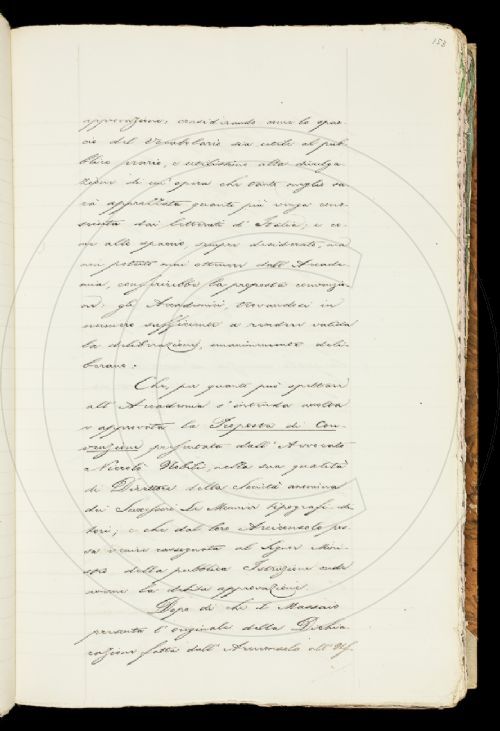 153
approvazione; considerando come lo spac-
cio del Vocabolario sia utile al pub-
blico erario, e utilissimo alla divulga-
zione di un' opera che tanto meglio sa-
rà apprezzata quanto più venga cono-
sciuta dai letterati d' Italia; e co-
me allo spaccio, sempre desiderato, ma
non potuto mai ottenere dall' Accade-
mia, conferirebbe la proposta convenzio-
ne; gli Accademici, trovandosi in
numero sufficiente a rendere valida
la deliberazione, unanimemente deli-
berano:
Che, per quanto può spettare
all' Accademia s' intenda accolta
e approvata la Proposta di Con-
venzione presentata dall' Avvocato
Niccolò Nobili, nella sua qualità
di Direttore della Società anonima
dei Successori Le Monnier tipografi edi-
tori; e che dal loro Arciconsolo pos-
sa venire consegnata al Signor Mini-
stro della pubblica Istruzione onde
averne la debita approvazione.
Dopo di che il Massaio
presenta l' originale della Dichia-
razione fatta dall' Arciconsolo all' Uf-